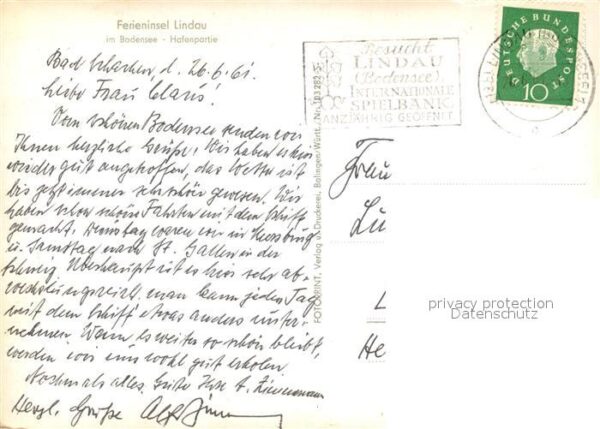 Ferieninsel Lindau
im Bodensee - Hafenpartie
Bad Schachen, d. 20.6.61.
Liebe Frau Claus!
Vom schönen Bodensee senden wir
Ihnen herzliche Grüße. Wir haben es hier
wieder gut angetroffen, das Wetter ist
bis jetzt immer sehr schön gewesen. Wir
haben schon schöne Fahrten mit dem Schiff
gemacht. Dienstag waren wir in Meersburg
u. Samstag nach St. Gallen in der
Schweiz. Überhaupt ist es hier sehr ab-
wechslungsreich, man kann jeden Tag
mit dem Schiff etwas anders unter-
nehmen. Wenn es weiter so schön bleibt,
werden wir uns wohl gut erholen.
Nochmals alles Gute Ihre A. Zimmermann
Herzl. Grüße
FOTOPRINT, Verlag u. Druckerei, Balingen/Württ.
Besucht
LINDAU
(Bodensee)
INTERNATIONALE
SPIELBANK
GANZJÄHRIG GEÖFFNET
DEUTSCHE BUNDESPOST
10
Frau
Lu
L
He
privacy protection
Datenschutz